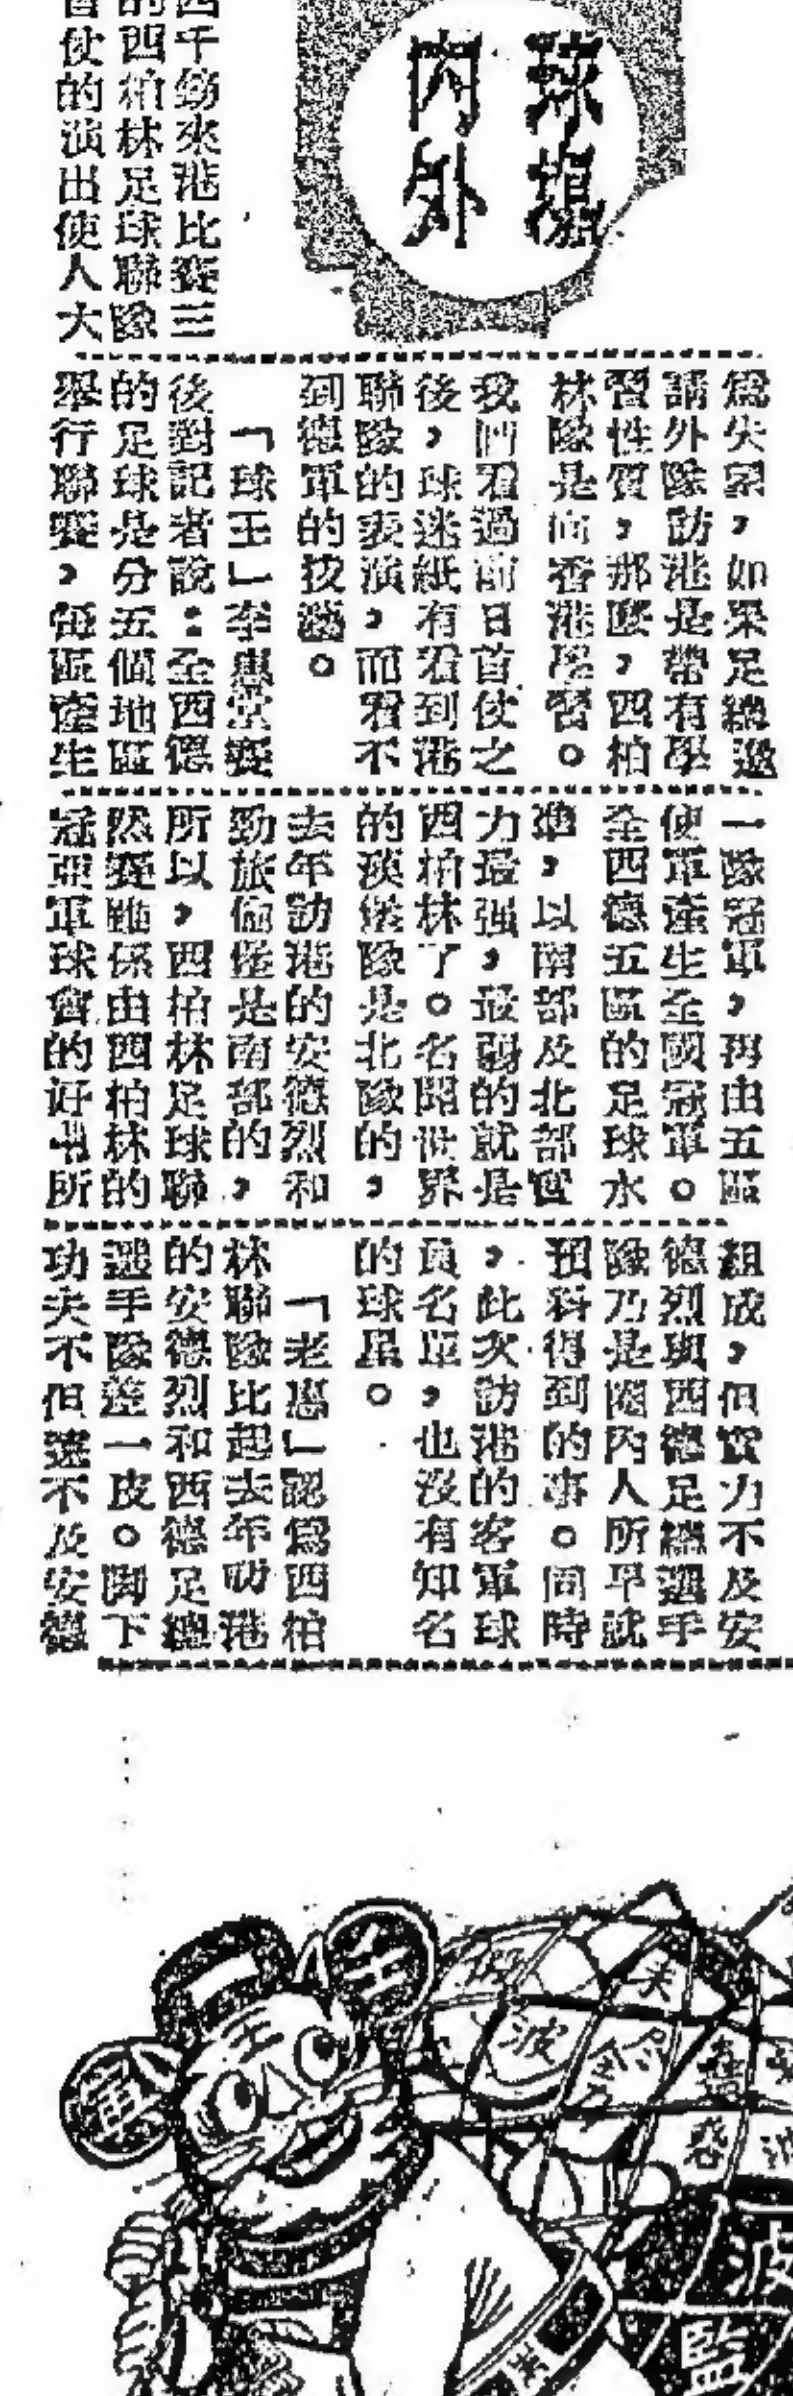 球場
內外
四千鎊來港比賽三
的西柏林足球聯隊
首仗的演出使人大
為失望,如果足總邀
請外隊訪港是帶有學
習性質,那麼,西柏
林隊是向香港學習。
我們看過前日首仗之
後,球迷祗有看到港
聯隊的表演,而看不
到德軍的技藝。
「球王」李惠堂賽
後對記者說:全西德
的足球是分五個地區
舉行聯賽,每區產生
一隊冠軍,再由五區
使軍產生全國冠軍。
全西德五區的足球水
準,以南部及北部實
力最强,最弱的就是
西柏林了。名聞世界
的漢堡隊是北隊的,
去年訪港的安德烈和
勁旅 是南部的,
所以,西柏林足球聯
然賽雖係由西柏林的
冠亞軍球會的好手所
組成,但實力不及安
德烈與西德足總選手
隊乃是圈內人所早就
預料得到的事。同時
,此次訪港的客軍球
員名單,也沒有知名
的球星。
「老惠」認為西柏
林聯隊比起去年訪港
的安德烈和西德足總
選手隊差一皮。脚下
功夫不但遠不及安德
王
寅
波
波
監